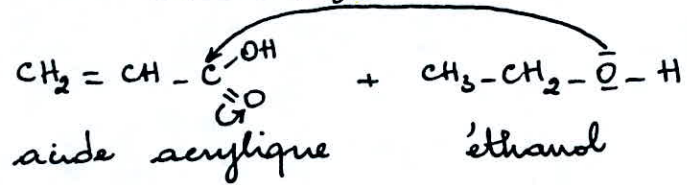 CH₂ = CH - C - OH + CH₃ - CH₂ - O - H
O
acide acrylique éthanol